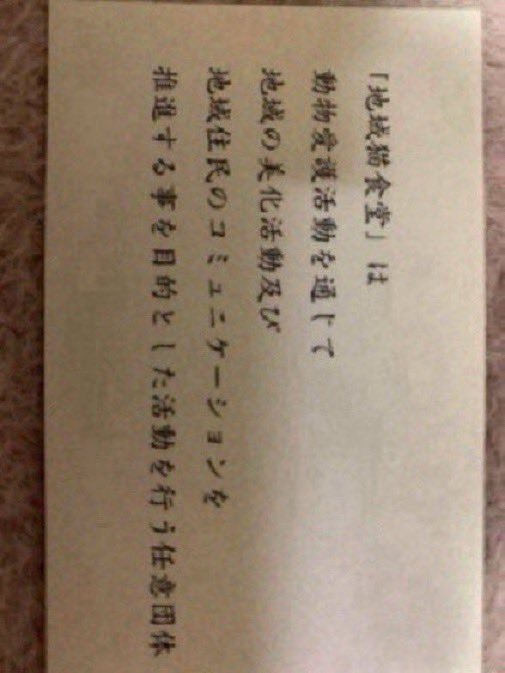 「地域猫食堂」は
動物愛護活動を通じて
地域の美化活動及び
地域住民のコミュニケーションを
推進する事を目的とした活動を行う任意団体